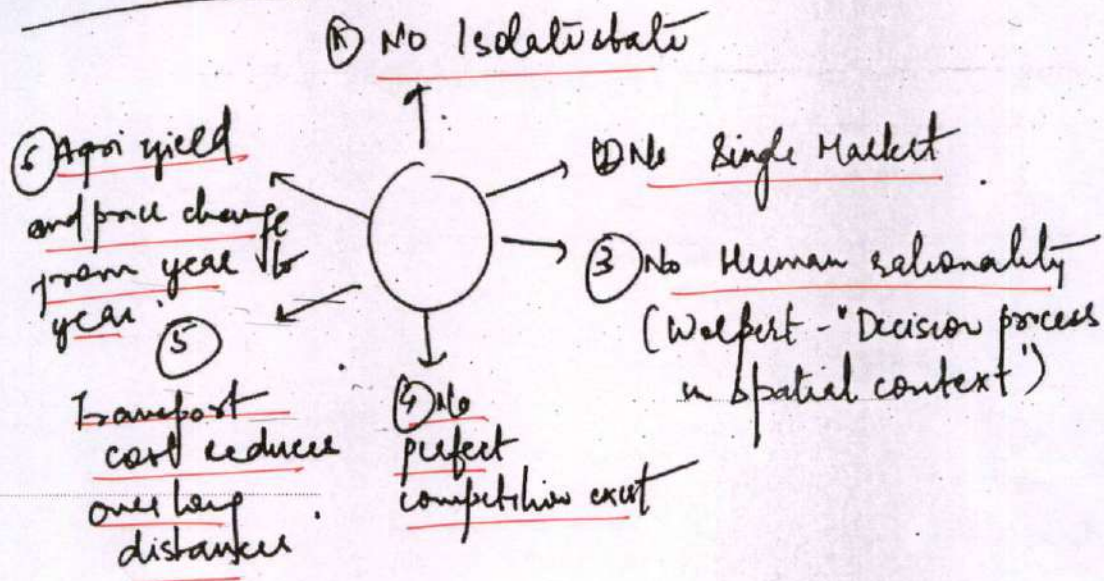 ① No Isolate state
② No Single Market
③ No Human rationality
(Wolpert - "Decision process
in spatial context")
④ No
perfect
competition exist
⑤
Transport
cost reduces
over long
distances
⑥ Agri yield
and price change
from year to
year.